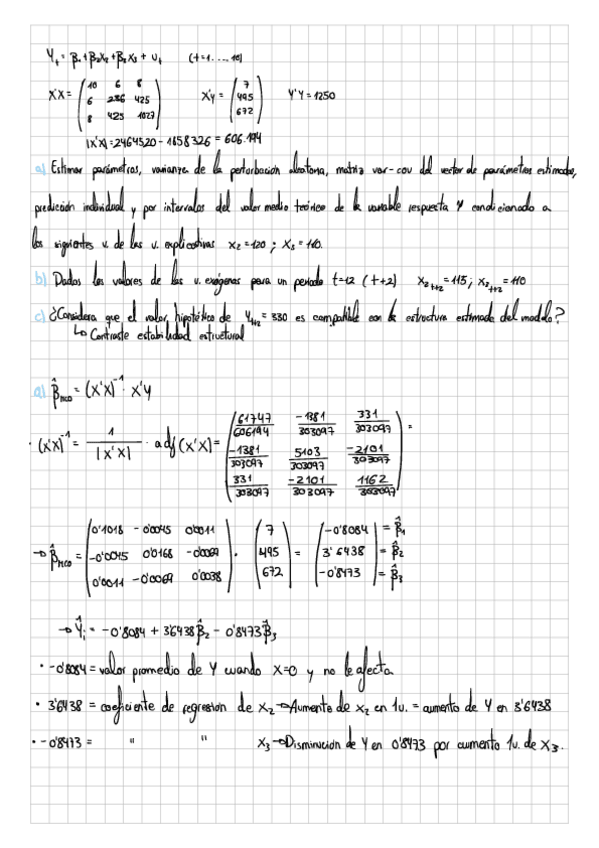 Y_t = β_1 + β_2 X_2 + β_3 X_3 + u_t (t=1....10)
X'X = (10 6 8
6 286 425
8 425 1027) X'Y = (7
495
672) Y'Y = 1250
|X'X| = 2464520 - 1858326 = 606.194
a) Estimar parámetros, varianza de la perturbación aleatoria, matriz var-cov del vector de parámetros estimados,
predicción individual y por intervalos del valor medio teórico de la variable respuesta Y condicionado a
los siguientes v. de las v. explicativas X_2 = 120 ; X_3 = 110.
b) Dados los valores de las v. exógenas para un periodo t=12 (t+2) X_2t+2 = 115 ; X_3t+2 = 110
c) ¿Considera que el valor hipotético de Y_t+2 = 330 es compatible con la estructura estimada del modelo?
↳ Contraste estabilidad estructural
a) β̂_MCO = (X'X)^-1 · X'Y
· (X'X)^-1 = 1/|X'X| · adj (X'X) = (61747/606194 -1381/303097 331/303097
-1381/303097 5103/303097 -2101/303097
331/303097 -2101/303097 1162/303097) =
→ β̂_MCO = (0'1018 -0'0045 0'0011
-0'0045 0'0168 -0'0069
0'0011 -0'0069 0'0038) · (7
495
672) = (-0'8084
3'6438
-0'8473) = β̂_1
= β̂_2
= β̂_3
→ Ŷ_i = -0'8084 + 3'6438 β̂_2 - 0'8473 β̂_3
• -0'8084 = valor promedio de Y cuando X=0 y no le afecta
• 3'6438 = coeficiente de regresión de X_2 → Aumento de X_2 en 1u. = aumento de Y en 3'6438
• -0'8473 = " " X_3 → Disminución de Y en 0'8473 por aumento 1u. de X_3.